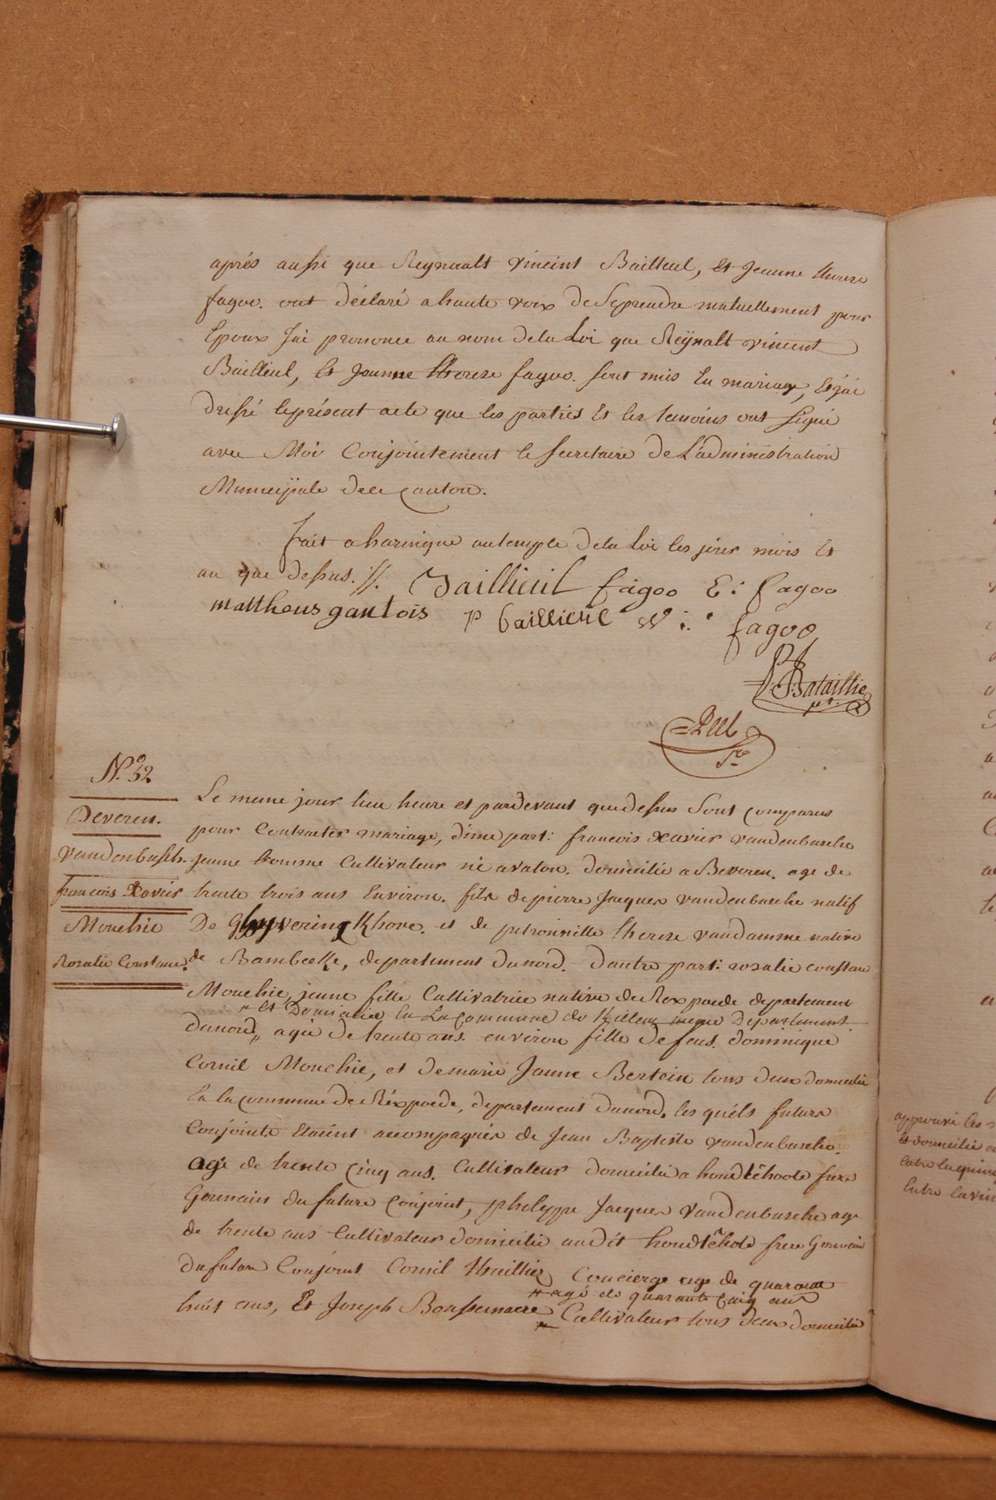 aprés aussi que Reynalt vincint Bailleul, Et Jeanne therese
fagoo. ont déclaré a haute voix de Seprendre mutuellement pour
Epoux J'ai prononce au nom dela Loi que Reÿnalt vincent
Bailleul, Et Jeanne therese fagoo. sont unis En mariage, Et j'ai
dressé leprésent acte que les parties Et les temoins ont signé
avec Moi Conjointement le secretaire de L'administration
Municipale dece Canton.
fait a haringue autemple dela Loi les jour mois Et
an que dessus. //. Baillieul fagoo E: fagoo
mattheus gantois p baillieul W: fagoo
P J Bataillie
pt.
Peel
Sre
N.º 32
Beveren.
Vandenbussch.
francois Xavier
Mouchie
Rosalie Constance.
Le meme jour lieu heure et pardevant que dessus Sont comparus
pour Contracter mariage, d'une part: francois xavier vandenbusche
jeune homme Cultivateur né a vaton. domicilié a Beveren. age de
trente trois ans Environ. fils de pierre Jacques vandenbusche natif
De Ghyverinckhove. et de petronnille therese vandamme native
de Bambecke, departement dunord. d'autre part: rosalie constance
Mouchie, jeune fille Cultivatrice native de Rexpoede departement
" Et Domiciliée En La Commune de Killem meme Departement
dunord " agée de trente ans environ fille de feus dominique
Cornil Mouchie, et demarie Jeanne Bertein tous deux domicilié
En la commune de Réxpoede, departement dunord. les quéls futurs
Conjoints Etaint accompagnés de Jean Baptiste vandenbusche.
agé de trente Cinq ans. Cultivateur domicilié a hondtschoote frere
Germain du future Conjoint, philippe Jacques vandenbusche age
de trente ans Cultivateur domicilié audit hondtschote frere Germain
dufutur Conjoint Cornil Concierge age de quarante
" agé de quarante Cinq ans
huit ans, Et Joseph Cultivateur tous deux domicilié
approuvé les
Et domicilié
Entre
Entre